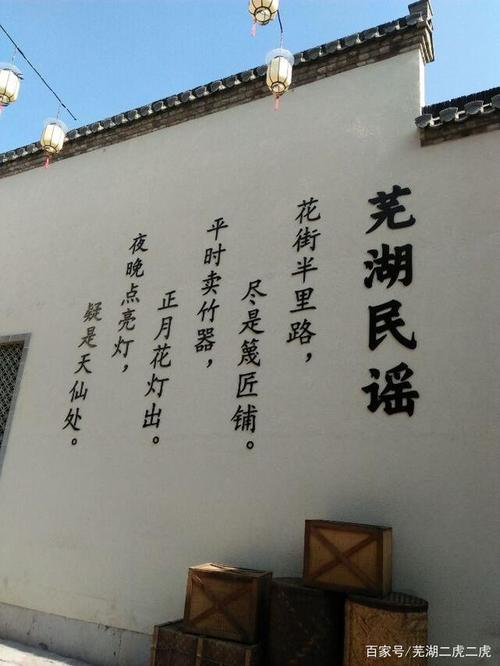 芜湖民谣
花街半里路，
尽是篾匠铺。
平时卖竹器，
正月花灯出。
夜晚点亮灯，
疑是天仙处。
百家号/芜湖二虎二虎